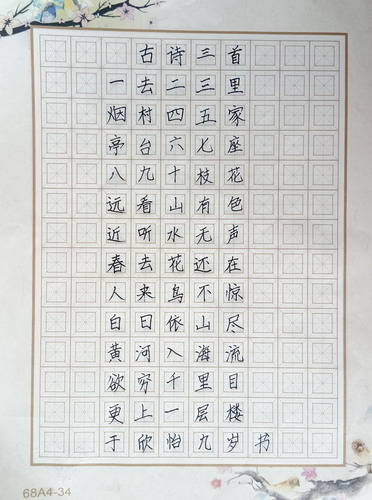 古诗三首
一去二三里
烟村四五家
亭台六七座
八九十枝花
远看山有色
近听水无声
春去花还在
人来鸟不惊
白日依山尽
黄河入海流
欲穷千里目
更上一层楼
于欣怡九岁书
68A4-34